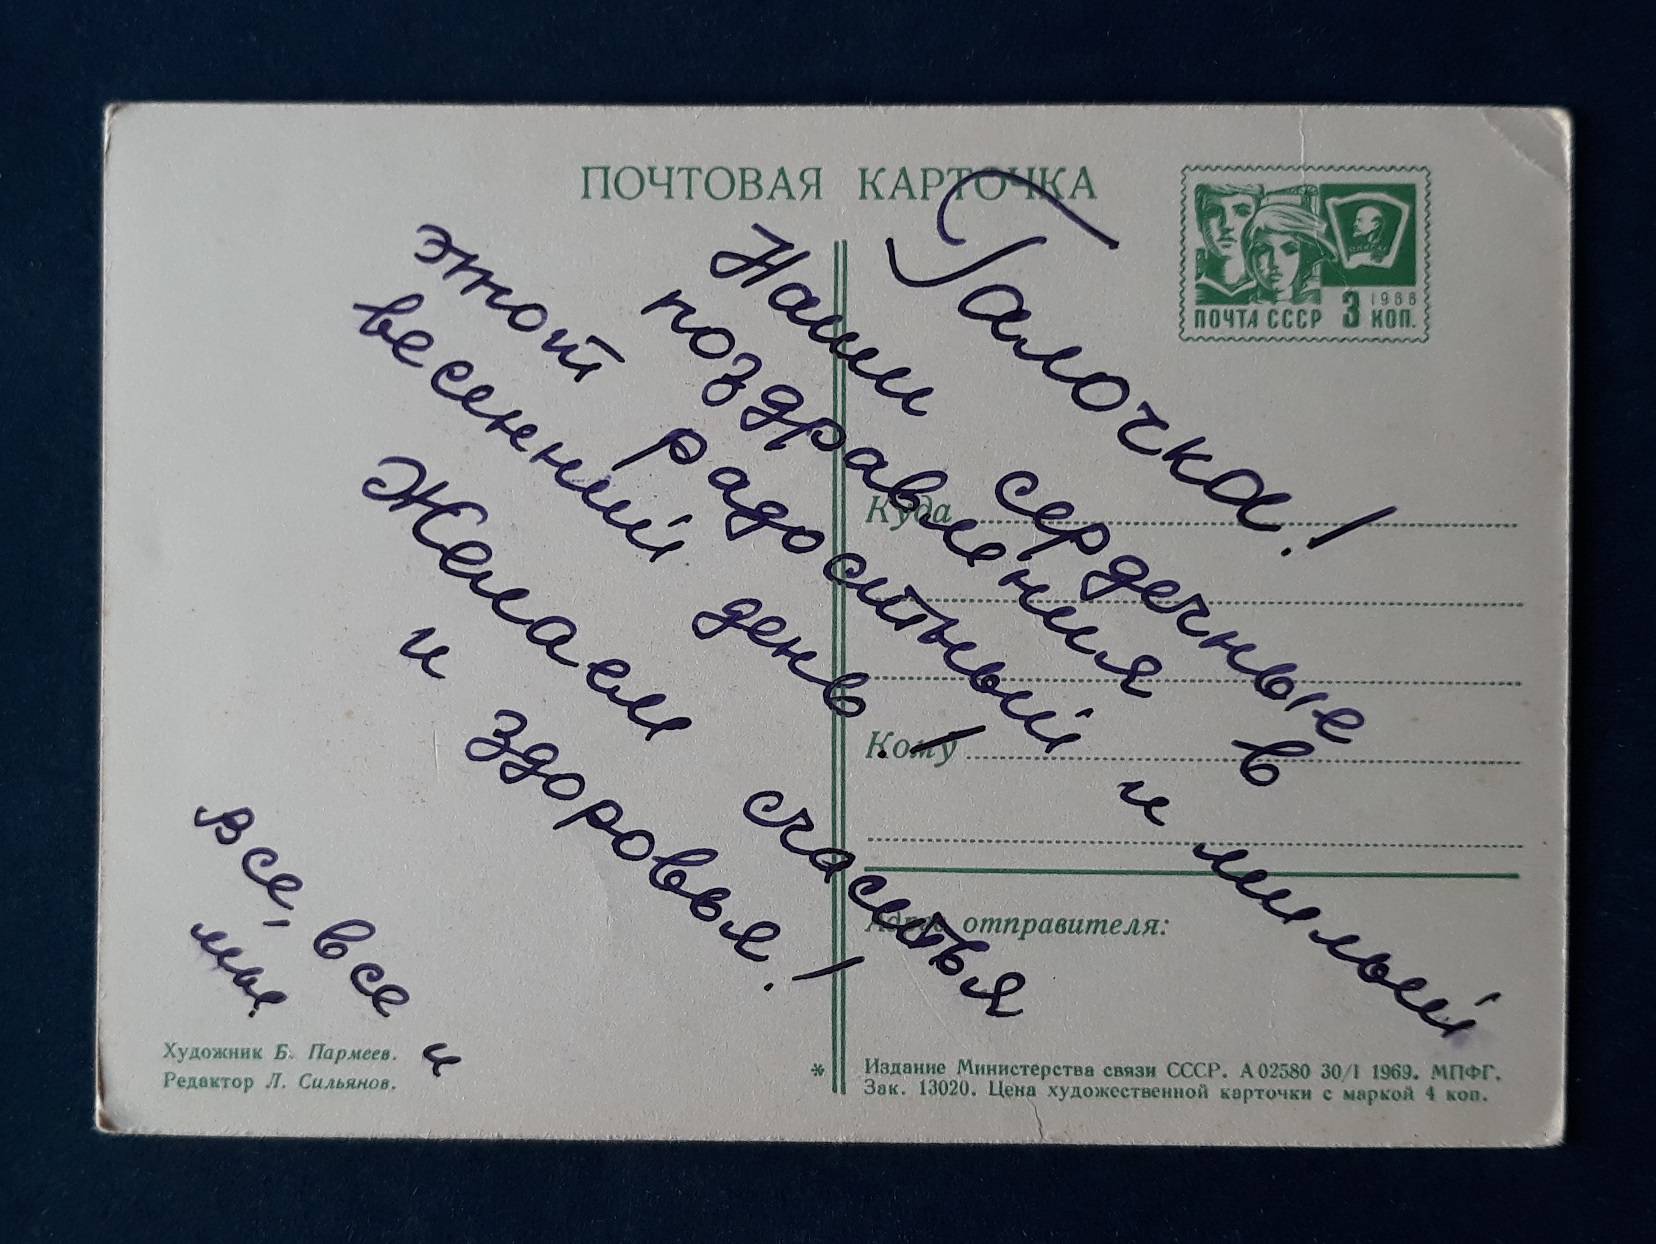 ПОЧТОВАЯ КАРТОЧКА
1966
ПОЧТА СССР 3 КОП.
Галочка!
Наши сердечные
поздравления в
этот радостный и милый
весенний день!
Желаем счастья
и здоровья!
Все, все и
мы
Куда
Кому
Адрес отправителя:
Художник Б. Пармеев.
Редактор Л. Сильянов.
* Издание Министерства связи СССР. А 02580 30/I 1969. МПФГ.
Зак. 13020. Цена художественной карточки с маркой 4 коп.